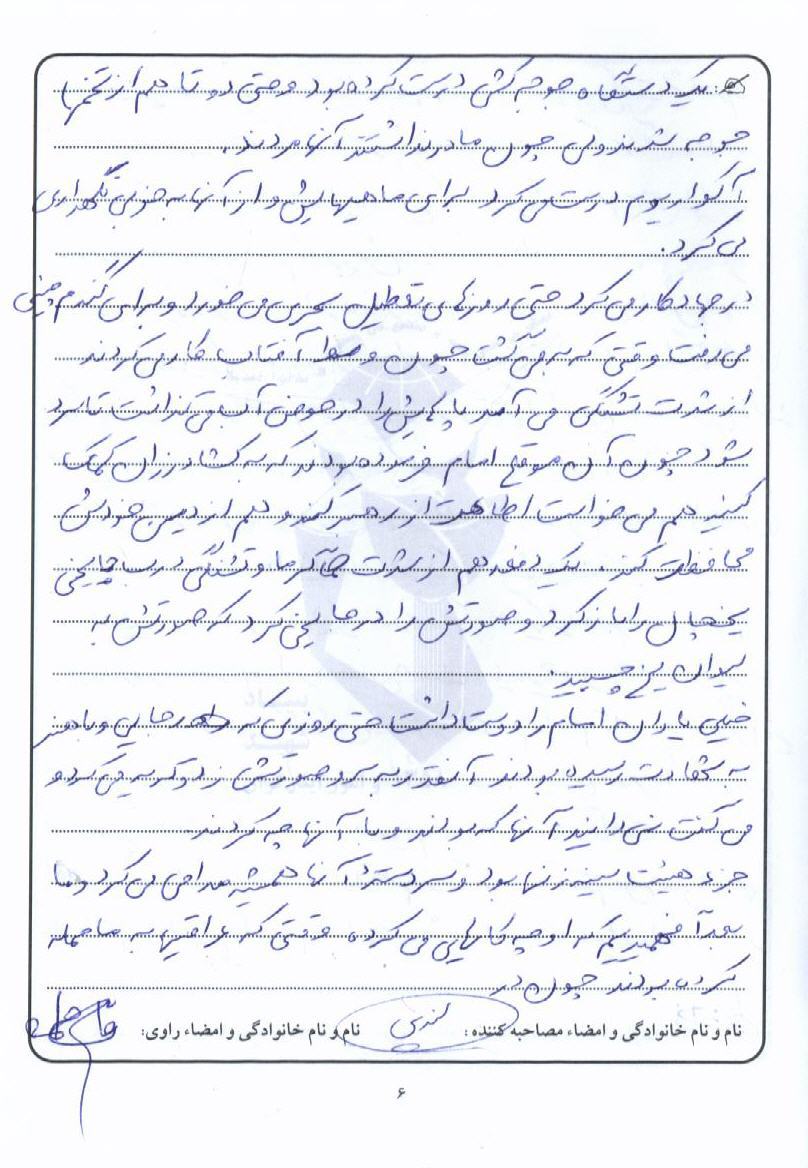 یک دستگاه جوجه کشی درست کرده بود و حتی دو تا هم از تخم ها
جوجه شدند ولی چون مادر نداشتند آنها مردند.
آکواریوم درست می کرد برای ماهیهایش و از آنها به خوبی نگهداری
می کرد.
در جهاد کار می کرد حتی روزهای تعطیل سحری می خورد و برای گندم چینی
می رفت وقتی که بر می گشت چون وسط آفتاب کار می کردند
از شدت تشنگی می آمد پاهایش را در حوض آب می گذاشت تا سرد
شود چون آن موقع امام فرموده بودند که به کشاورزان کمک
کنید هم می خواست اطاعت از رهبر کند و هم از دین خودش
محافظت کند. یک دفعه هم از شدت گرما و تشنگی درب جایخی
یخچال را باز کرد و صورتش را در جایخی کرد که صورتش به
لیوان یخ چسبید.
خیلی یاران امام را دوست داشت حتی روزی که رجایی و باهنر
به شهادت رسیده بودند آنقدر به سر و صورتش زد و گریه می کرد و
می گفت نمی دانید آنها که بودند و با آنها چه کردند.
جزء هیئت سینه زنها بود و سر دسته آنها همیشه مداحی می کرد و ما
بعداً فهمیدیم که او چه کارهایی می کرده وقتی که عراقیها به ما حمله
کرده بودند چون در
نام و نام خانوادگی و امضاء مصاحبه کننده: نام و نام خانوادگی و امضاء راوی:
۶